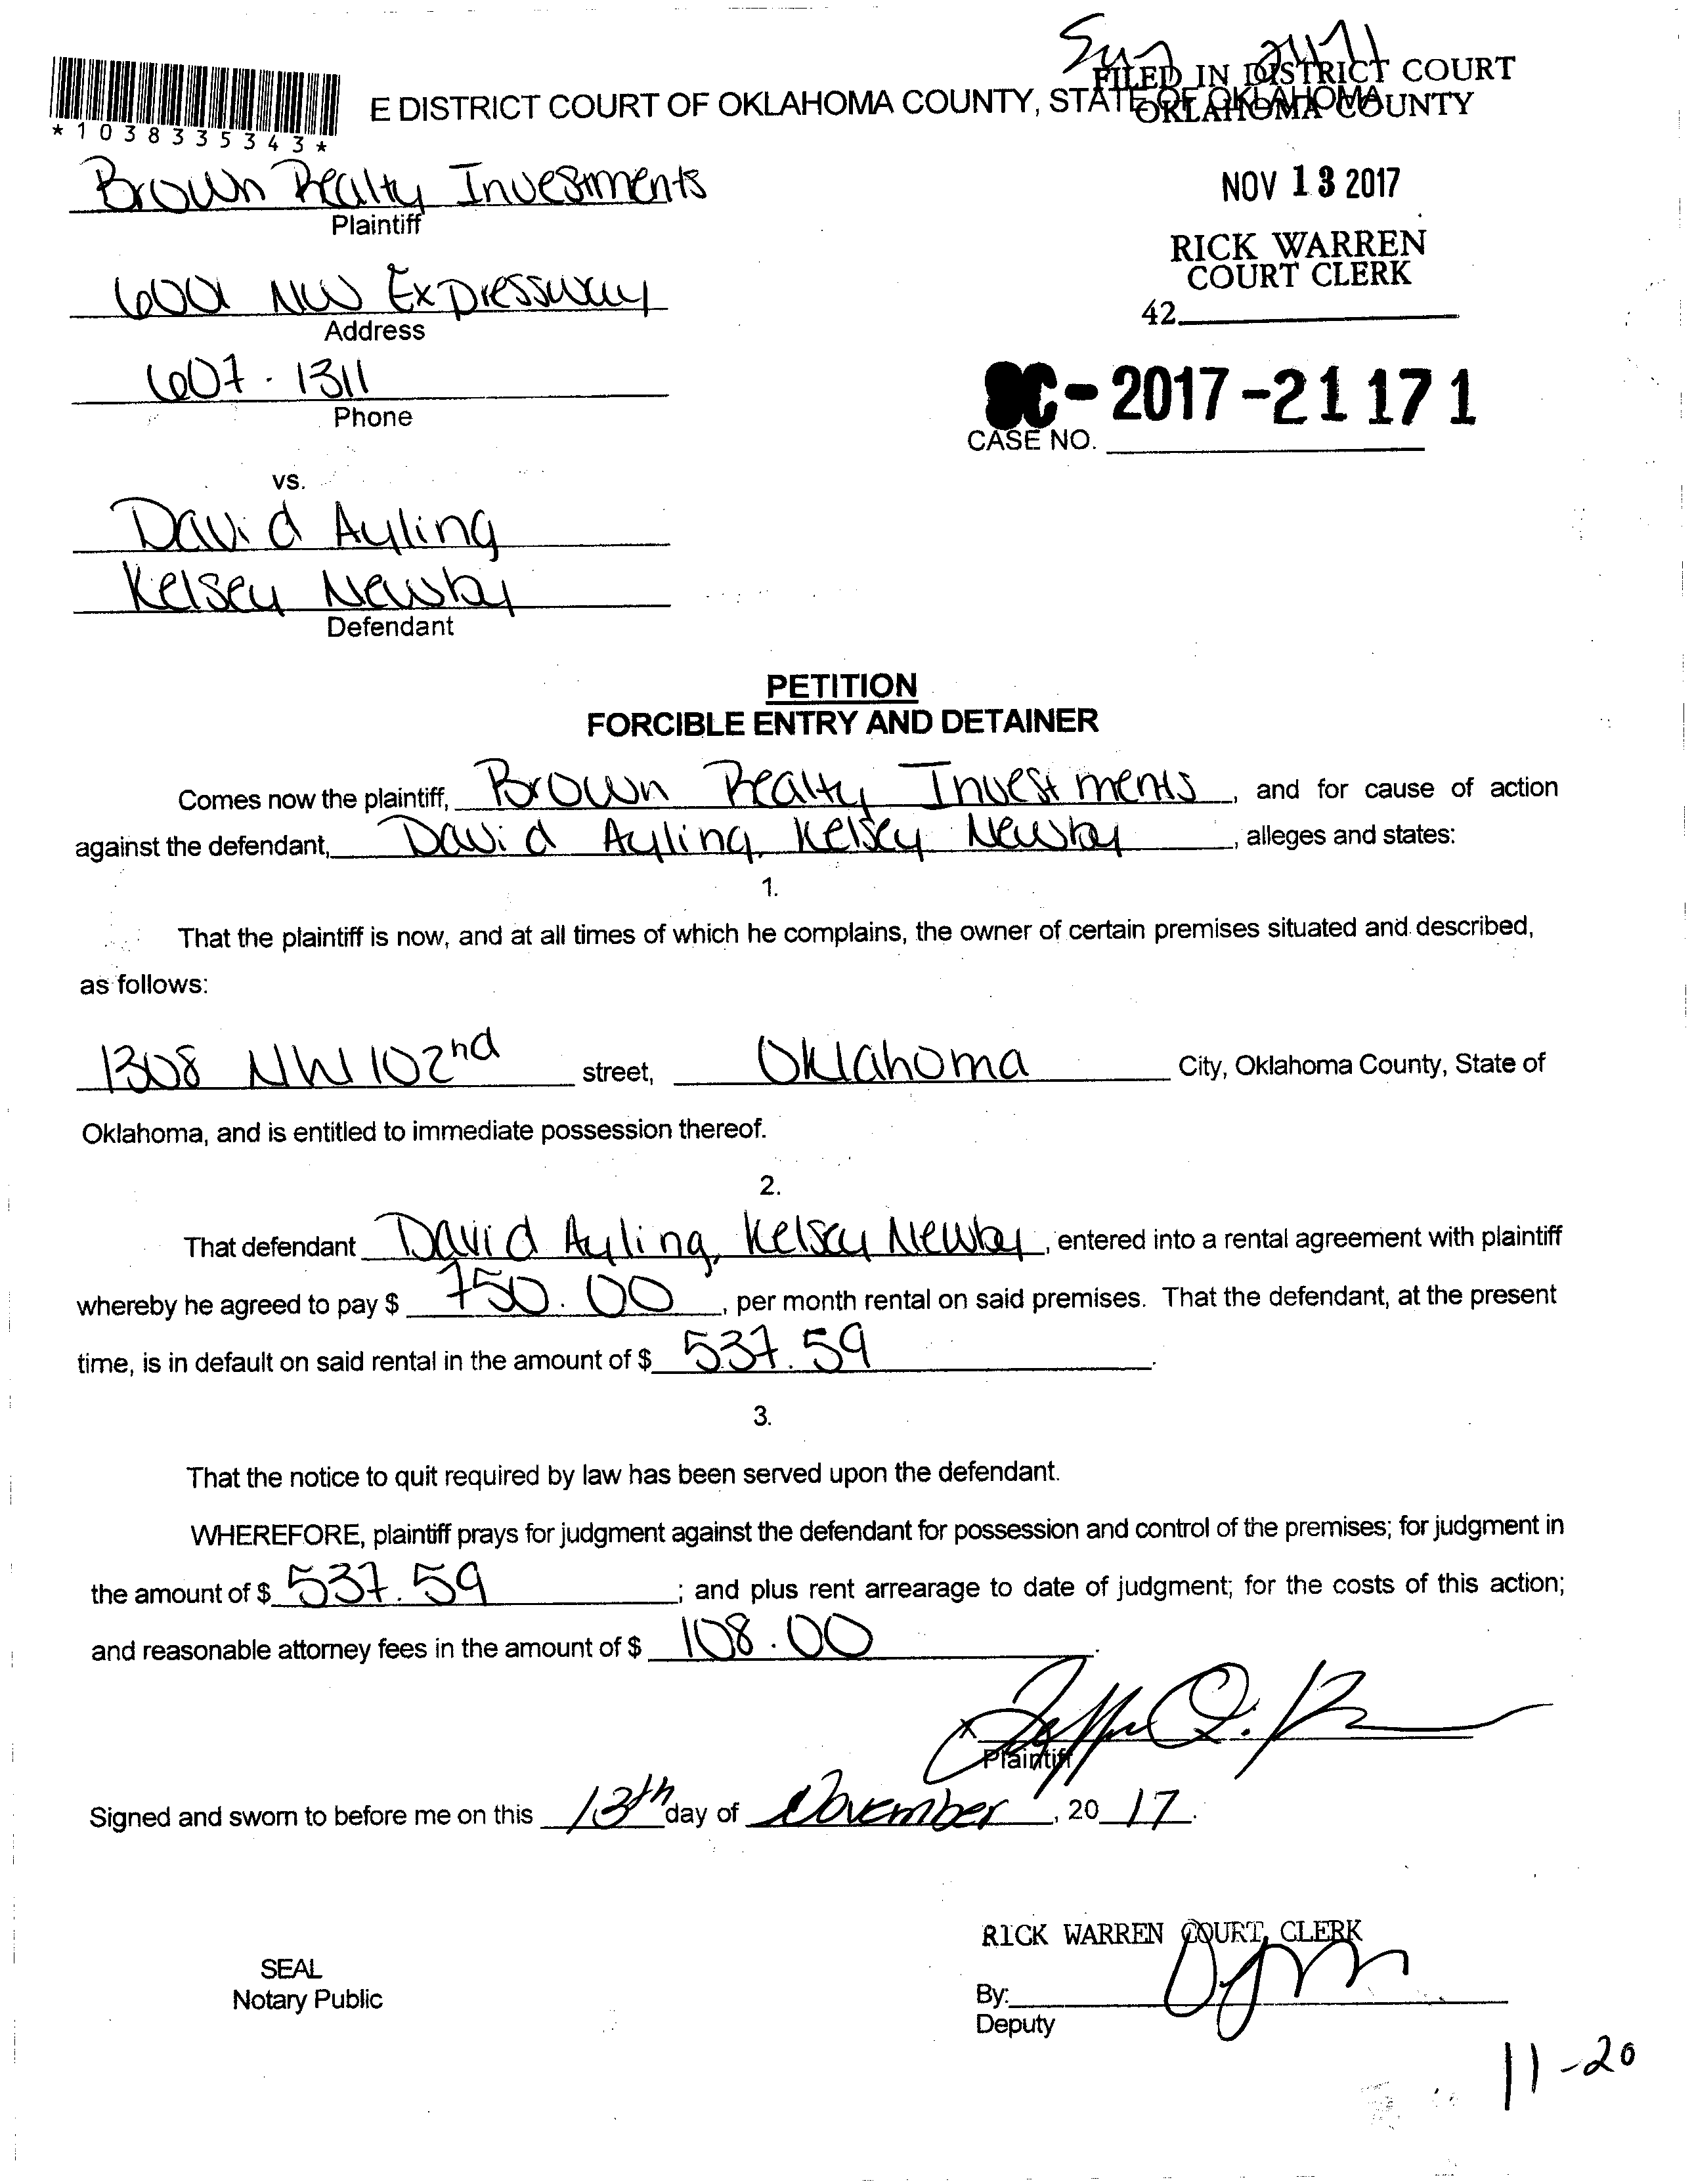 FILED IN DISTRICT COURT
OKLAHOMA COUNTY
E DISTRICT COURT OF OKLAHOMA COUNTY, STATE OF OKLAHOMA
*1038335343*
Brown Realty Investments
Plaintiff
NOV 13 2017
RICK WARREN
COURT CLERK
42
6001 NW Expressway
Address
607-1311
Phone
SC-2017-21171
CASE NO.
vs.
David Ayling
Kelsey Newby
Defendant
PETITION
FORCIBLE ENTRY AND DETAINER
Comes now the plaintiff, Brown Realty Investments, and for cause of action
against the defendant, David Ayling, Kelsey Newby, alleges and states:
1.
That the plaintiff is now, and at all times of which he complains, the owner of certain premises situated and described,
as follows:
1308 NW 102nd street, Oklahoma City, Oklahoma County, State of
Oklahoma, and is entitled to immediate possession thereof.
2.
That defendant David Ayling, Kelsey Newby, entered into a rental agreement with plaintiff
whereby he agreed to pay $ 750.00, per month rental on said premises. That the defendant, at the present
time, is in default on said rental in the amount of $ 537.59.
3.
That the notice to quit required by law has been served upon the defendant.
WHEREFORE, plaintiff prays for judgment against the defendant for possession and control of the premises; for judgment in
the amount of $ 537.59; and plus rent arrearage to date of judgment; for the costs of this action;
and reasonable attorney fees in the amount of $ 108.00.
x
Plaintiff
Signed and sworn to before me on this 13th day of November, 20 17.
RICK WARREN COURT CLERK
SEAL
Notary Public
By:
Deputy
11-20